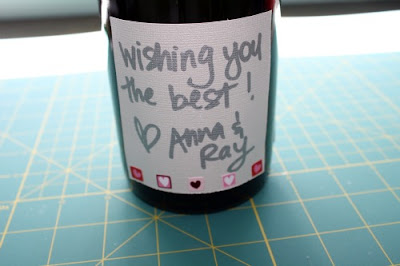 wishing you
the best!
♡ Anna &
Ray